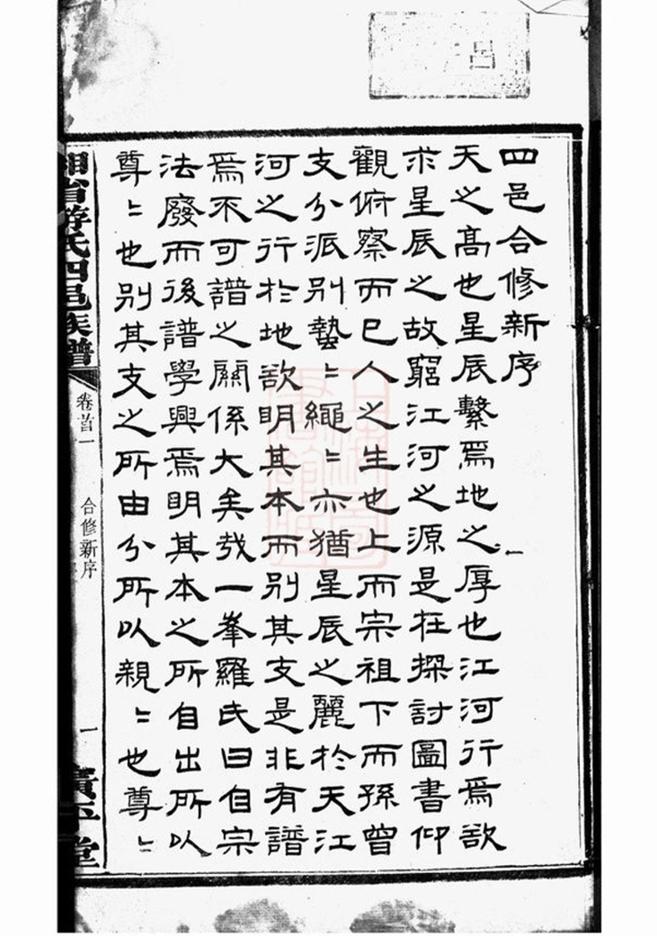 四邑合修新序
天之髙也星辰繫焉地之厚也江河行焉欲
求星辰之故窮江河之源是在探討圖書仰
觀俯察而已人之生也上而宗祖下而孫曾
支分派別蟄〻繩〻亦猶星辰之麗於天江
河之行於地欲明其本而別其支是非有譜
焉不可譜之關係大矣哉一峯羅氏曰自宗
法廢而後譜學興焉明其本之所自出所以
尊〻也別其支之所由分所以親〻也尊〻
湘省游氏四邑族譜
卷首一
合修新序
一
廣平堂